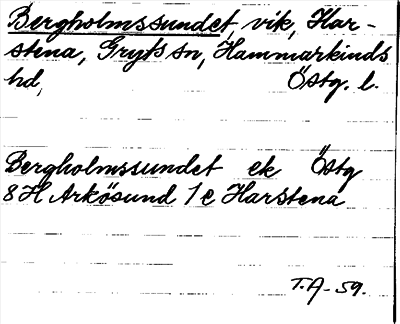 Bergholmssundet, vik, Har-
stena, Gryts sn, Hammarkinds
hd, Östg. l.
Bergholmssundet ek Östg
8H Arkösund 1e Harstena
T.A-59.